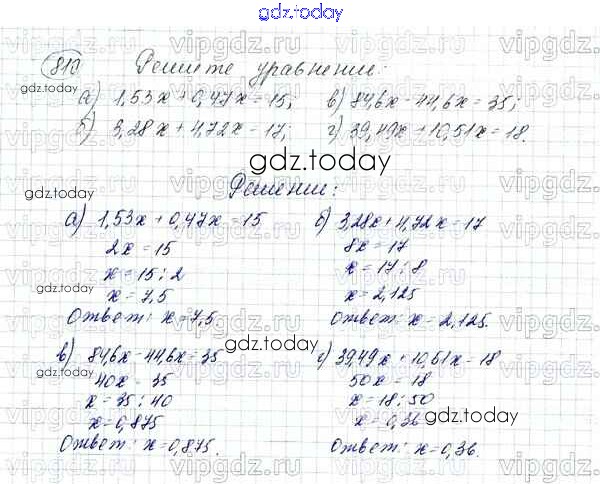 gdz.today
810 Решите уравнение:
а) 1,53x + 0,47x = 15; в) 84,6x - 44,6x = 35;
б) 3,28x + 4,72x = 17; г) 39,49x + 10,51x = 18.
gdz.today
gdz.today
Решение:
gdz.today
а) 1,53x + 0,47x = 15
2x = 15
x = 15 : 2
x = 7,5
Ответ: x = 7,5
б) 3,28x + 4,72x = 17
8x = 17
x = 17 : 8
x = 2,125
Ответ: x = 2,125.
gdz.today
gdz.today
в) 84,6x - 44,6x = 35
40x = 35
x = 35 : 40
x = 0,875
Ответ: x = 0,875.
gdz.today
г) 39,49x + 10,51x = 18
50x = 18
x = 18 : 50
x = 0,36
Ответ: x = 0,36.
gdz.today
gdz.today
vipgdz.ru